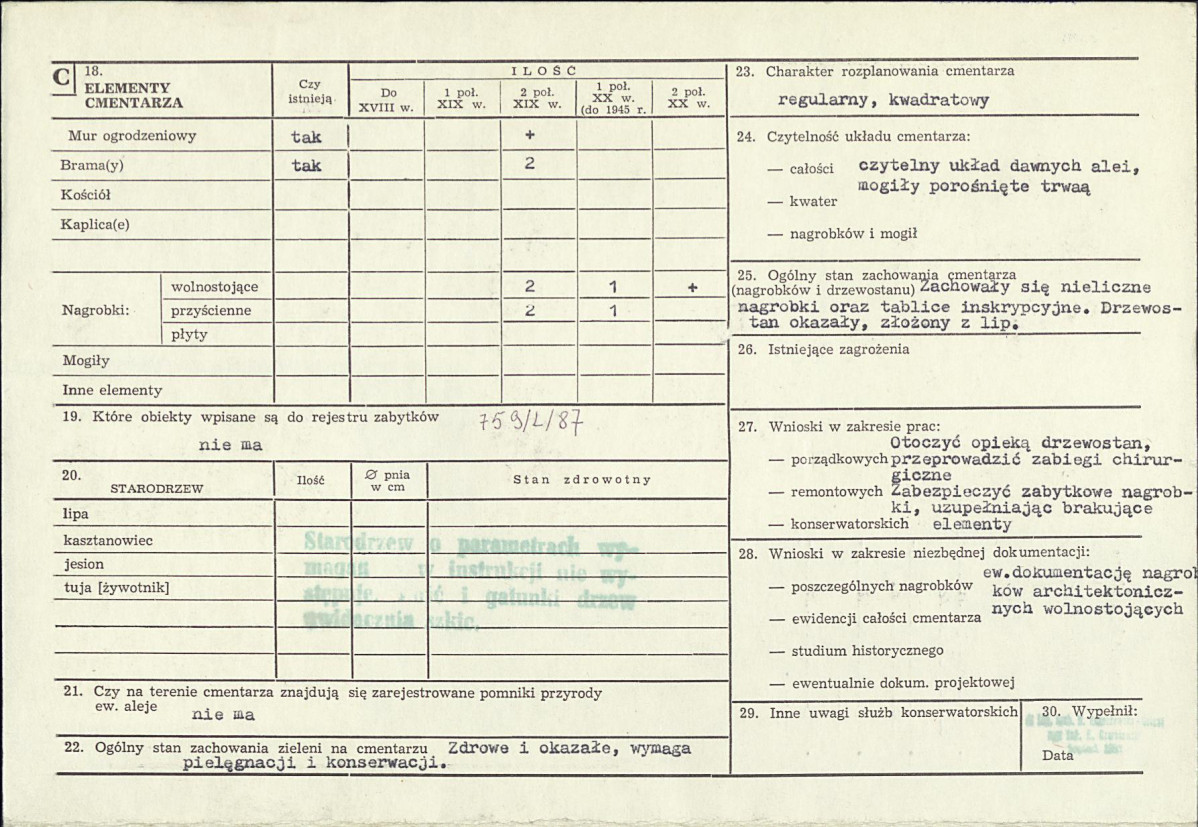 C 18.
ELEMENTY
CMENTARZA
Czy
istnieją
ILOŚĆ
Do
XVIII w.
1 poł.
XIX w.
2 poł.
XIX w.
1 poł.
XX w.
(do 1945 r.
2 poł.
XX w.
Mur ogrodzeniowy tak +
Brama(y) tak 2
Kościół
Kaplica(e)
Nagrobki:
wolnostojące 2 1 +
przyścienne 2 1
płyty
Mogiły
Inne elementy
19. Które obiekty wpisane są do rejestru zabytków 759/L/87
nie ma
20.
STARODRZEW
Ilość
Ø pnia
w cm
Stan zdrowotny
lipa
kasztanowiec
jesion
tuja [żywotnik]
Starodrzew o parametrach wy-
magan w instrukcji nie wy-
stępuje. i gatunki drzew
szkic.
21. Czy na terenie cmentarza znajdują się zarejestrowane pomniki przyrody
ew. aleje
nie ma
22. Ogólny stan zachowania zieleni na cmentarzu Zdrowe i okazałe, wymaga
pielęgnacji i konserwacji.
23. Charakter rozplanowania cmentarza
regularny, kwadratowy
24. Czytelność układu cmentarza:
— całości czytelny układ dawnych alei,
mogiły porośnięte trwaą
— kwater
— nagrobków i mogił
25. Ogólny stan zachowania cmentarza
(nagrobków i drzewostanu) Zachowały się nieliczne
nagrobki oraz tablice inskrypcyjne. Drzewos-
tan okazały, złożony z lip.
26. Istniejące zagrożenia
27. Wnioski w zakresie prac:
Otoczyć opieką drzewostan,
— porządkowych przeprowadzić zabiegi chirur-
giczne
— remontowych Zabezpieczyć zabytkowe nagrob-
ki, uzupełniając brakujące
— konserwatorskich elementy
28. Wnioski w zakresie niezbędnej dokumentacji:
ew.dokumentację nagrob
— poszczególnych nagrobków ków architektonicz-
nych wolnostojących
— ewidencji całości cmentarza
— studium historycznego
— ewentualnie dokum. projektowej
29. Inne uwagi służb konserwatorskich
30. Wypełnił:
Data